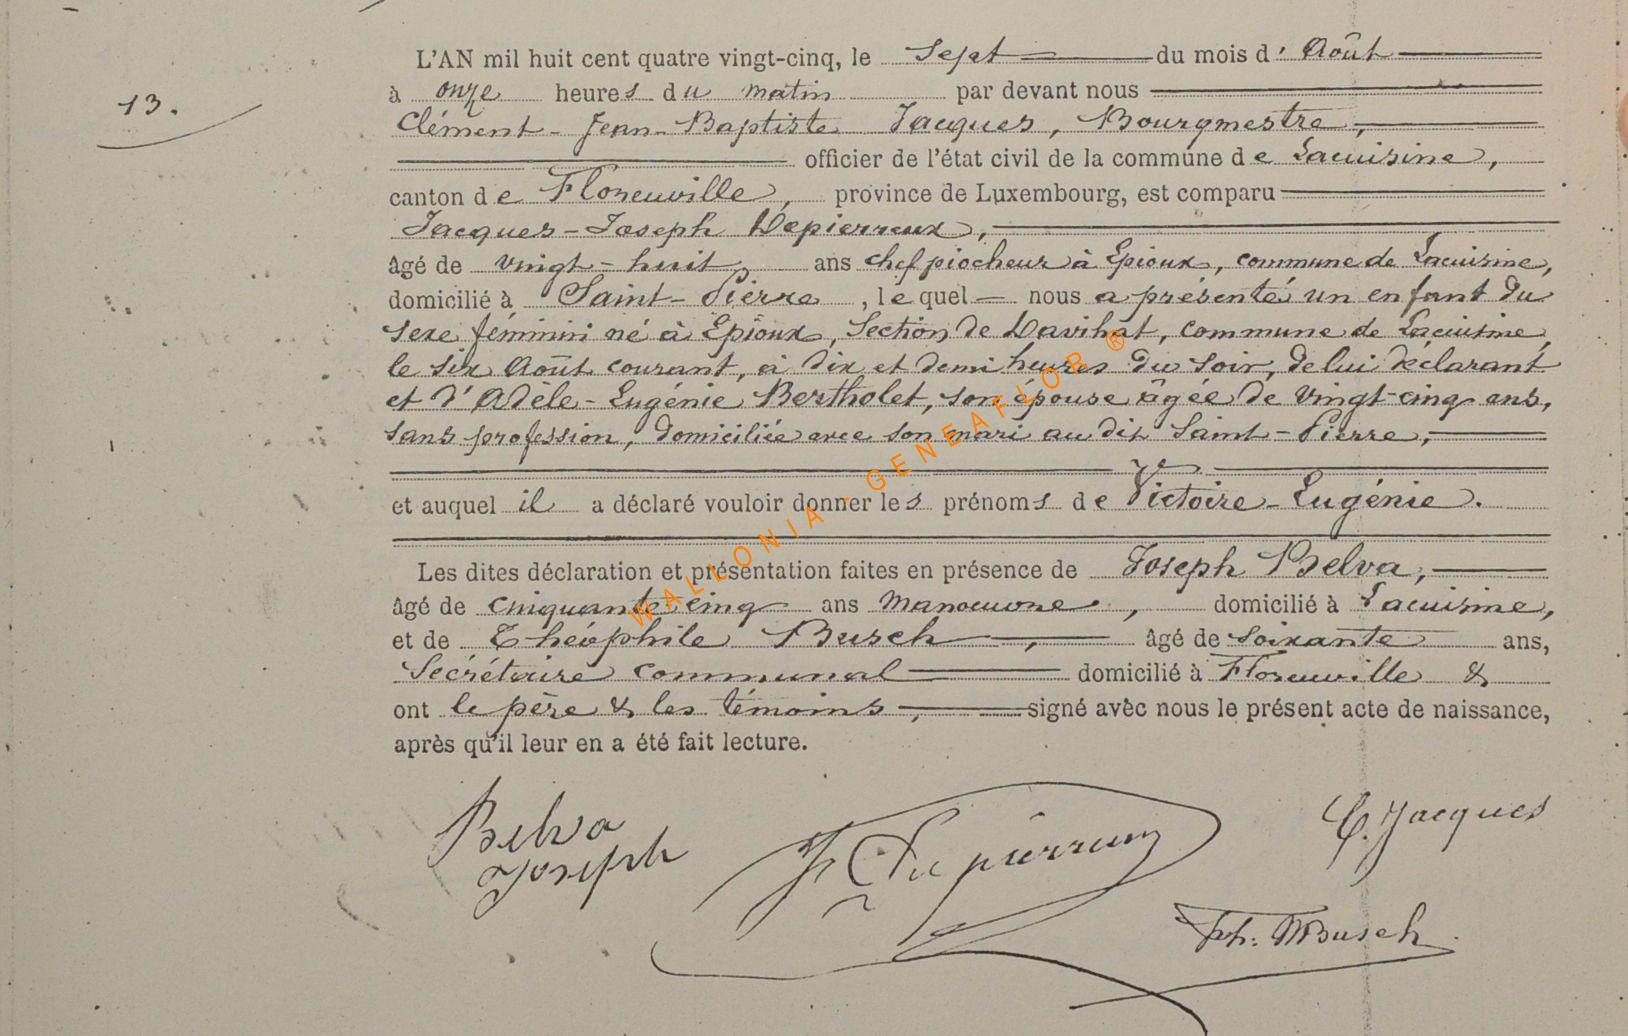 L'AN mil huit cent quatre vingt-cinq, le Sept du mois d' Août
13.
à onze heures du matin par devant nous
Clément-Jean-Baptiste Jacques, Bourgmestre,
officier de l'état civil de la commune de Lacuisine,
canton de Florenville, province de Luxembourg, est comparu
Jacques-Joseph Depierreux,
âgé de vingt-huit, ans chef piocheur à Epioux, commune de Lacuisine,
domicilié à Saint-Pierre, lequel nous a présenté un enfant du
sexe féminin né à Epioux, Section de Davihat, commune de Lacuisine,
le six Août courant, à dix et demi heures du soir, de lui déclarant
et d'Adèle-Eugénie Bertholet, son épouse âgée de vingt-cinq ans,
sans profession, domiciliée avec son mari au dit Saint-Pierre,
et auquel il a déclaré vouloir donner les prénoms de Victoire-Eugénie.
Les dites déclaration et présentation faites en présence de Joseph Belva,
âgé de cinquante cinq ans Manoeuvre, domicilié à Lacuisine,
et de Théophile Busch, âgé de soixante ans,
Secrétaire communal domicilié à Florenville &
ont le père & les témoins, signé avec nous le présent acte de naissance,
après qu'il leur en a été fait lecture.
WALLONIA - GENEAFLOR ®
Belva
Joseph
J Depierreux
C. Jacques
Th: Busch